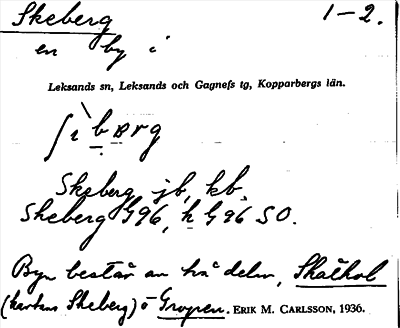 Skeberg 1-2.
en by i
Leksands sn, Leksands och Gagnefs tg, Kopparbergs län.
Skeberg jb, kb.
Skeberg G96, h G96 SO.
Byn består av två delar, Skålhol
(kartans Skeberg) o Gropen. ERIK M. CARLSSON, 1936.